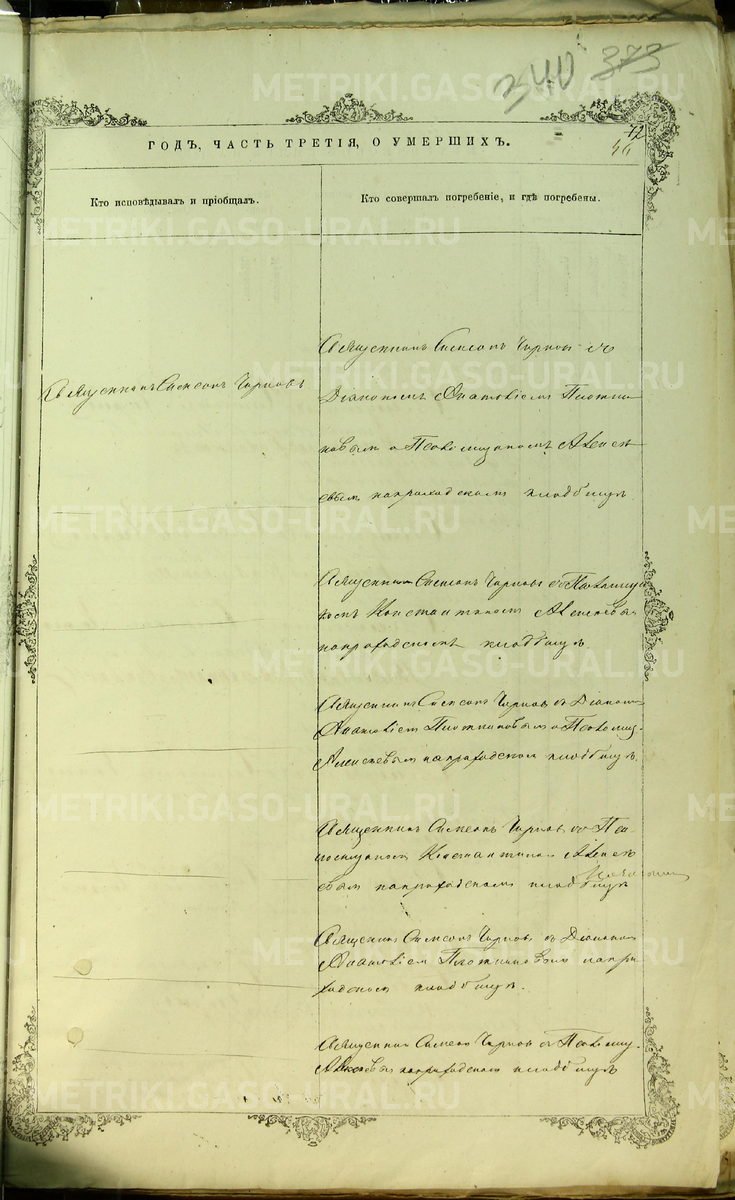 340 373
METRIKI.GASO-URAL.RU
42
46
ГОДЪ, ЧАСТЬ ТРЕТІЯ, О УМЕРШИХЪ.
Кто исповѣдывалъ и пріобщалъ.
Кто совершалъ погребеніе, и гдѣ погребены.
Священникъ Симеонъ Чирковъ
Священникъ Симеонъ Чирковъ съ
Діакономъ Плотни
ковымъ и Псаломщикомъ Алексѣ
евымъ на приходскомъ кладбищѣ
Священникъ Симеонъ Чирковъ съ Псаломщи
комъ Константиномъ Алексѣевымъ
на приходскомъ кладбищѣ
Священникъ Симеонъ Чирковъ съ Діаконом
Плотниковымъ и Псаломщ.
Алексѣевымъ на приходском кладбищѣ.
Священникъ Симеонъ Чирковъ со Пса
ломщикомъ Константином Алексѣ
евым на приходскомъ кладбищѣ
Священник Симеонъ Чирковъ съ Діаконом
Плотниковымъ на при
ходском кладбищѣ.
Священник Симеон Чирков съ Псаломщ.
Алексѣевым на приходском кладбищѣ